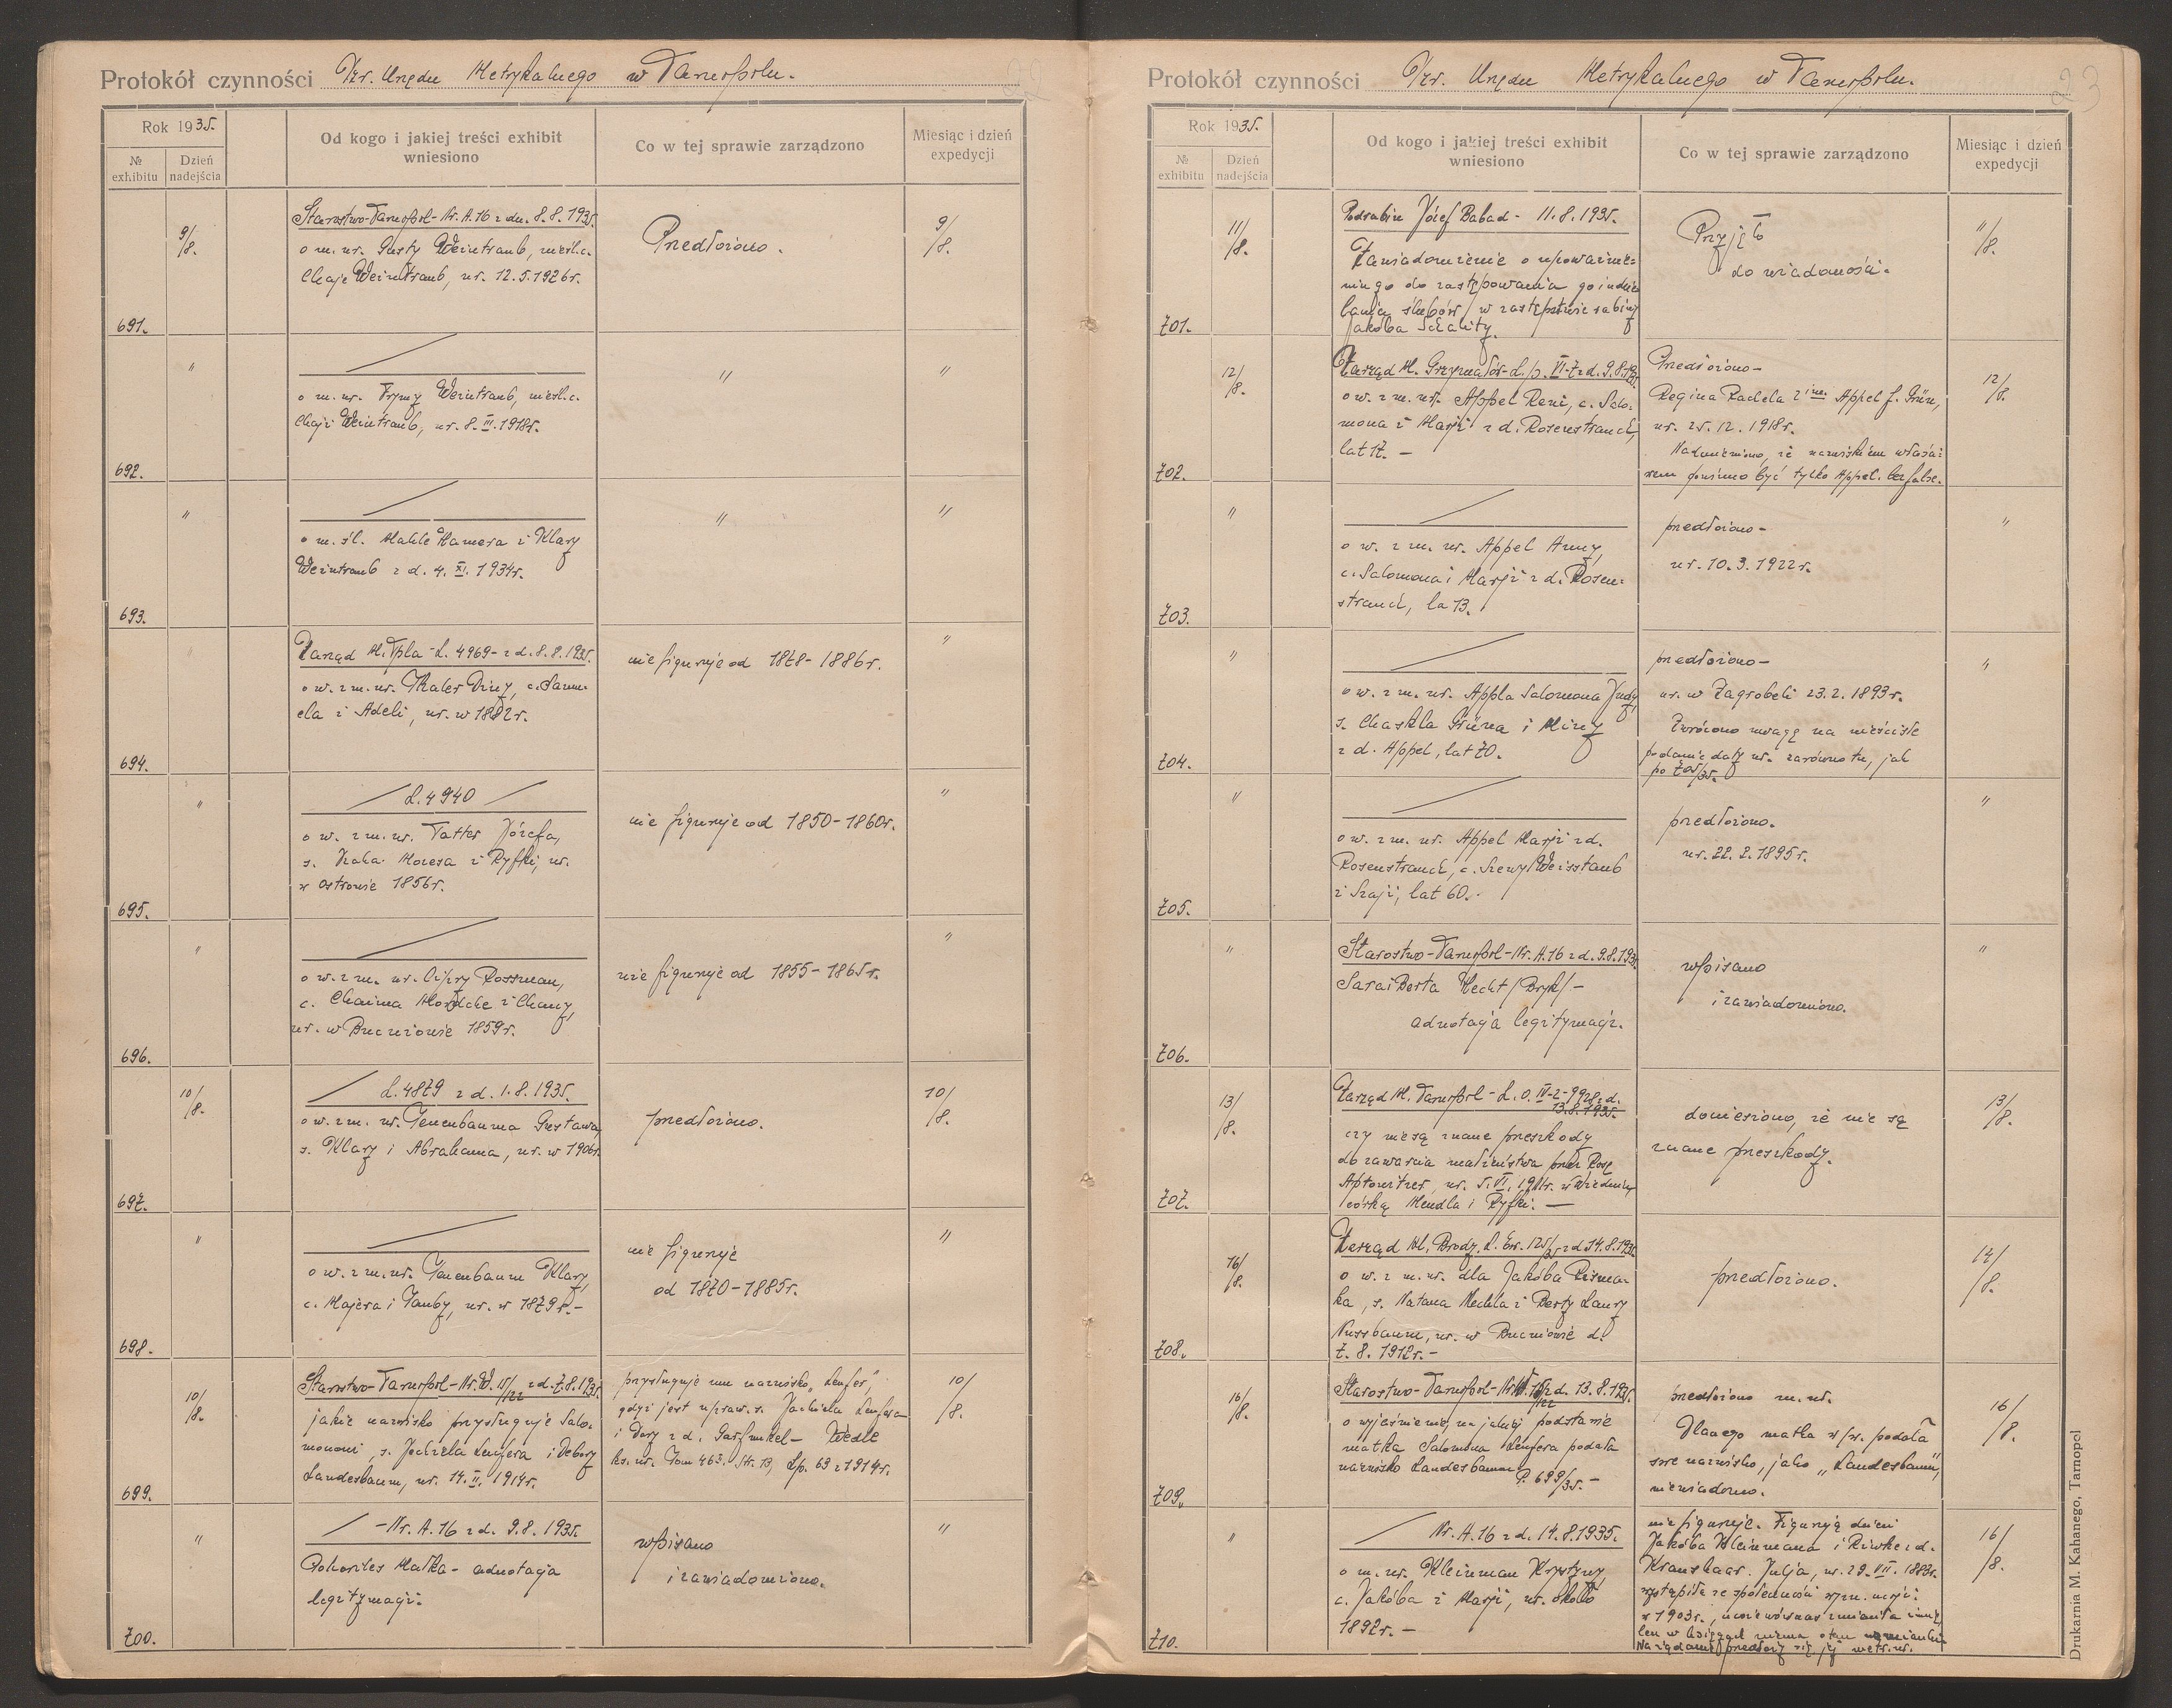 Protokół czynności Izr. Urzędu Metrykalnego w Tarnopolu.
Rok 1935.
№ exhibitu
Dzień nadejścia
Od kogo i jakiej treści exhibit wniesiono
Co w tej sprawie zarządzono
Miesiąc i dzień expedycji
691.
9/8.
Starostwo-Tarnopol-Nr. A.16 z dn. 8.8.1935.
o m. ur. Gusty Weintraub, nieśl. c.
Chaje Weintraub, ur. 12.5.1926r.
Przedłożono.
9/8.
692.
"
o m. ur. Frymy Weintraub, nieśl. c.
Chaji Weintraub, ur. 8.III.1918r.
"
"
693.
"
o m. śl. Hamera i Klary
Weintraub z d. 4.XI.1934r.
"
"
694.
"
Zarząd M. Tpla - L. 4969 - z d. 8.8.1935.
o w. z m. ur. Thaler Diny, c. Samu-
ela i Adeli, ur. w 1882r.
nie figuruje od 1878-1886r.
"
695.
"
L. 4940
o w. z m. ur. Tatter Józefa,
s. Mozesa i Ryfki, ur.
w Ostrowie 1856r.
nie figuruje od 1850-1860r.
"
696.
"
o w. z m. ur. Cipry Rossman,
c. Chaima Mordche i Chany,
ur. w Bucniowie 1859r.
nie figuruje od 1855-1865r.
"
697.
10/8.
L. 4879 z d. 1.8.1935.
o w. z m. ur. Tenenbauma Gustawa,
s. Klary i Abrahama, ur. w 1906r.
przedłożono.
10/8.
698.
"
o w. z m. ur. Tenenbaum Klary,
c. Majera i Tauby, ur. w 1879r.-
nie figuruje
od 1870-1885r.
"
699.
10/8.
Starostwo-Tarnopol-Nr. W. 15/122 z d. 7.8.1935.
jakie nazwisko przysługuje Salo-
monowi, s. Jochiela Lenfera i Debory
Landesbaum, ur. 14.II.1914r.
przysługuje mu nazwisko „Lenfer",
gdyż jest upraw. s. Jochiela Lenfera
i Dory z d. Garfunkel - Wedle
ks. ur. Tom 463. Str. 13, Lp. 63 z 1914r.
10/8.
700.
"
-Nr. A.16 z d. 9.8.1935.
Pohoriles Malka - adnotacja
legitymacji.
wpisano
i zawiadomiono.
"
Protokół czynności Izr. Urzędu Metrykalnego w Tarnopolu.
23
Rok 1935.
№ exhibitu
Dzień nadejścia
Od kogo i jakiej treści exhibit wniesiono
Co w tej sprawie zarządzono
Miesiąc i dzień expedycji
701.
11/8.
Podrabin Józef Babad - 11.8.1935.
Zawiadomienie o upoważnie-
niu go do zastępowania go i udzie-
lania ślubów / w zastępstwie rabina
Jakóba
Przyjęto
do wiadomości.
11/8.
702.
12/8.
Zarząd M. Grzymałów - L. p. VI-7 z d. 9.8.1935.
o w. z m. ur. Appel Reni, c. Salo-
mona i Marji z d. Rosenstrauch,
lat 17. -
Przedłożono -
Regina Rachela 2 im. Appel f. Grün,
ur. 25.12.1918r.
Nadmieniono, że nazwiskiem właści-
wem powinno być tylko Appel. bez false.
12/8.
703.
"
o w. z m. ur. Appel Anny,
c. Salomona i Marji z d. Rosen-
strauch, la 13.
przedłożono -
ur. 10.3.1922r.
"
704.
"
o w. z m. ur. Appla Salomona Judy,
s. Chaskla Grüna i Miny
z d. Appel, lat 70.
przedłożono -
ur. w Zagrobeli 23.2.1893r.
Zwrócono uwagę na nieścisłe
podanie daty ur. zarówno tu, jak
po 705/35.
"
705.
"
o w. z m. ur. Appel Marji z d.
Rosenstrauch, c. Szewy Weisstaub
i Szaji, lat 60.
przedłożono.
ur. 22.2.1895r.
"
706.
"
Starostwo-Tarnopol-Nr. A.16 z d. 9.8.1935
Sarai Berta Hecht /Bryk/ -
adnotacja legitymacji.
wpisano
i zawiadomiono.
"
707.
13/8.
Zarząd M. Tarnopol - L. O. IV-2-9928 z d.
13.8.1935.
czy nie są znane przeszkody
do zawarcia małżeństwa przez Rosę
Aptowitzer, ur. 5.VI.1911r. w Wiedniu,
córką Mendla i Ryfki. -
doniesiono, że nie są
znane przeszkody.
13/8.
708.
16/8.
Zarząd M. Brody, L. Ew. 125/35 z d. 14.8.1935
o w. z m. ur. dla Jakóba Reisma-
ka, s. Natana Mechla i Berty Laury
Nussbaum, ur. w Bucniowie d.
7.8.1912r.-
przedłożono.
14/8.
709.
16/8.
Starostwo-Tarnopol-Nr W. 15/122 z d. 13.8.1935.
o wyjaśnienie, na jakiej podstawie
matka Salomona Lenfera podała
nazwisko Landesbaum P. 699/35.-
przedłożono m. ur.
Dlaczego matka w/w. podała
swe nazwisko, jako „Landesbaum",
niewiadomo.
16/8.
710.
"
Nr. A.16 z d. 14.8.1935.
o m. ur. Kleinman Krystyny,
c. Jakóba i Marji, ur. około
1892r.-
nie figuruje. Figurują dzieci
Jakóba Kleinmana i Riwke z d.
Kranshaar. Julja, ur. 29.VII.1883r.
wystąpiła ze społeczności wyzn. mojż.
w 1903r., ucz. wówczas zmianiła imię
lecz w księgach niema o tem wzmianki.
Na żądanie przedłoży się jej metr. ur.
16/8.
Drukarnia M. Kahanego, Tarnopol